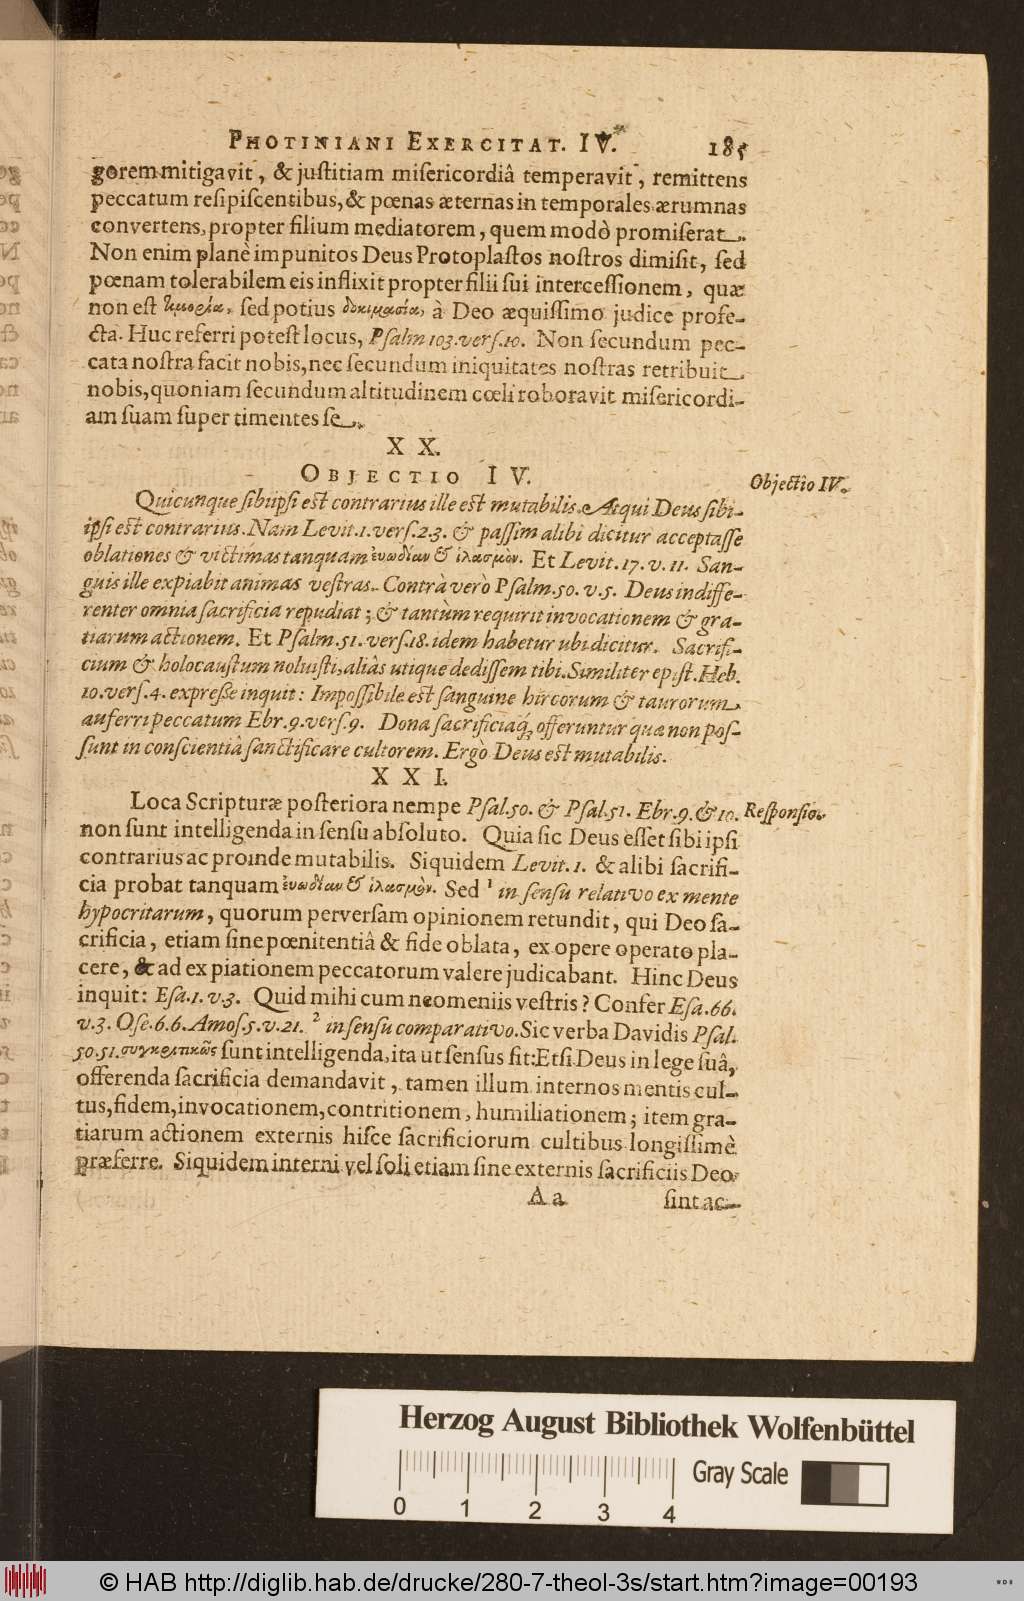 PHOTINIANI EXERCITAT. IV. 185
gorem mitigavit, & justitiam misericordiâ temperavit, remittens
peccatum resipiscentibus, & pœnas æternas in temporales ærumnas
convertens, propter filium mediatorem, quem modò promiserat.
Non enim planè impunitos Deus Protoplastos nostros dimisit, sed
pœnam tolerabilem eis inflixit propter filii sui intercessionem, quæ
non est τιμωρία, sed potius δοκιμασία, à Deo æquissimo judice profe-
cta. Huc referri potest locus, Psalm 103. vers. 10. Non secundum pec-
cata nostra facit nobis, nec secundum iniquitates nostras retribuit
nobis, quoniam secundum altitudinem cœli roboravit misericordi-
am suam super timentes se.
XX.
OBJECTIO IV.
Objectio IV.
Quicunque sibi ipsi est contrarius ille est mutabilis. Atqui Deus sibi-
ipsi est contrarius. Nam Levit. 1. vers. 2.3. & passim alibi dicitur acceptasse
oblationes & victimas tanquam ἐυωδίαν & ἱλασμὸν. Et Levit. 17. v. 11. San-
guis ille expiabit animas vestras. Contrà verò Psalm. 50. v. 5. Deus indiffe-
renter omnia sacrificia repudiat; & tantùm requirit invocationem & gra-
tiarum actionem. Et Psalm. 51. vers. 18. idem habetur ubi dicitur. Sacrifi-
cium & holocaustum noluisti, aliàs utique dedissem tibi. Similiter epist. Heb.
10. vers. 4. expresse inquit: Impossibile est sanguine hircorum & taurorum
auferri peccatum Ebr. 9. vers. 9. Dona sacrificiaq́; offeruntur quæ non pos-
sunt in conscientiâ sanctificare cultorem. Ergò Deus est mutabilis.
XXI.
Loca Scripturæ posteriora nempe Psal. 50. & Psal. 51. Ebr. 9. & 10. Responsio.
non sunt intelligenda in sensu absoluto. Quia sic Deus esset sibi ipsi
contrarius ac proinde mutabilis. Siquidem Levit. 1. & alibi sacrifi-
cia probat tanquam ἐυωδίαν & ἱλασμὸν. Sed 1 in sensu relativo ex mente
hypocritarum, quorum perversam opinionem retundit, qui Deo sa-
crificia, etiam sine pœnitentiâ & fide oblata, ex opere operato pla-
cere, & ad expiationem peccatorum valere judicabant. Hinc Deus
inquit: Esa. 1. v. 3. Quid mihi cum neomeniis vestris? Confer Esa. 66.
v. 3. Ose. 6.6. Amos. 5. v. 21. 2 in sensu comparativo. Sic verba Davidis Psal.
50. 51. συγκριτικῶς sunt intelligenda, ita ut sensus sit: Etsi Deus in lege suâ,
offerenda sacrificia demandavit, tamen illum internos mentis cul-
tus, fidem, invocationem, contritionem, humiliationem; item gra-
tiarum actionem externis hisce sacrificiorum cultibus longissimè
præferre. Siquidem interni vel soli etiam sine externis sacrificiis Deo
Aa sint ac-
Herzog August Bibliothek Wolfenbüttel
Gray Scale
0 1 2 3 4
© HAB http://diglib.hab.de/drucke/280-7-theol-3s/start.htm?image=00193